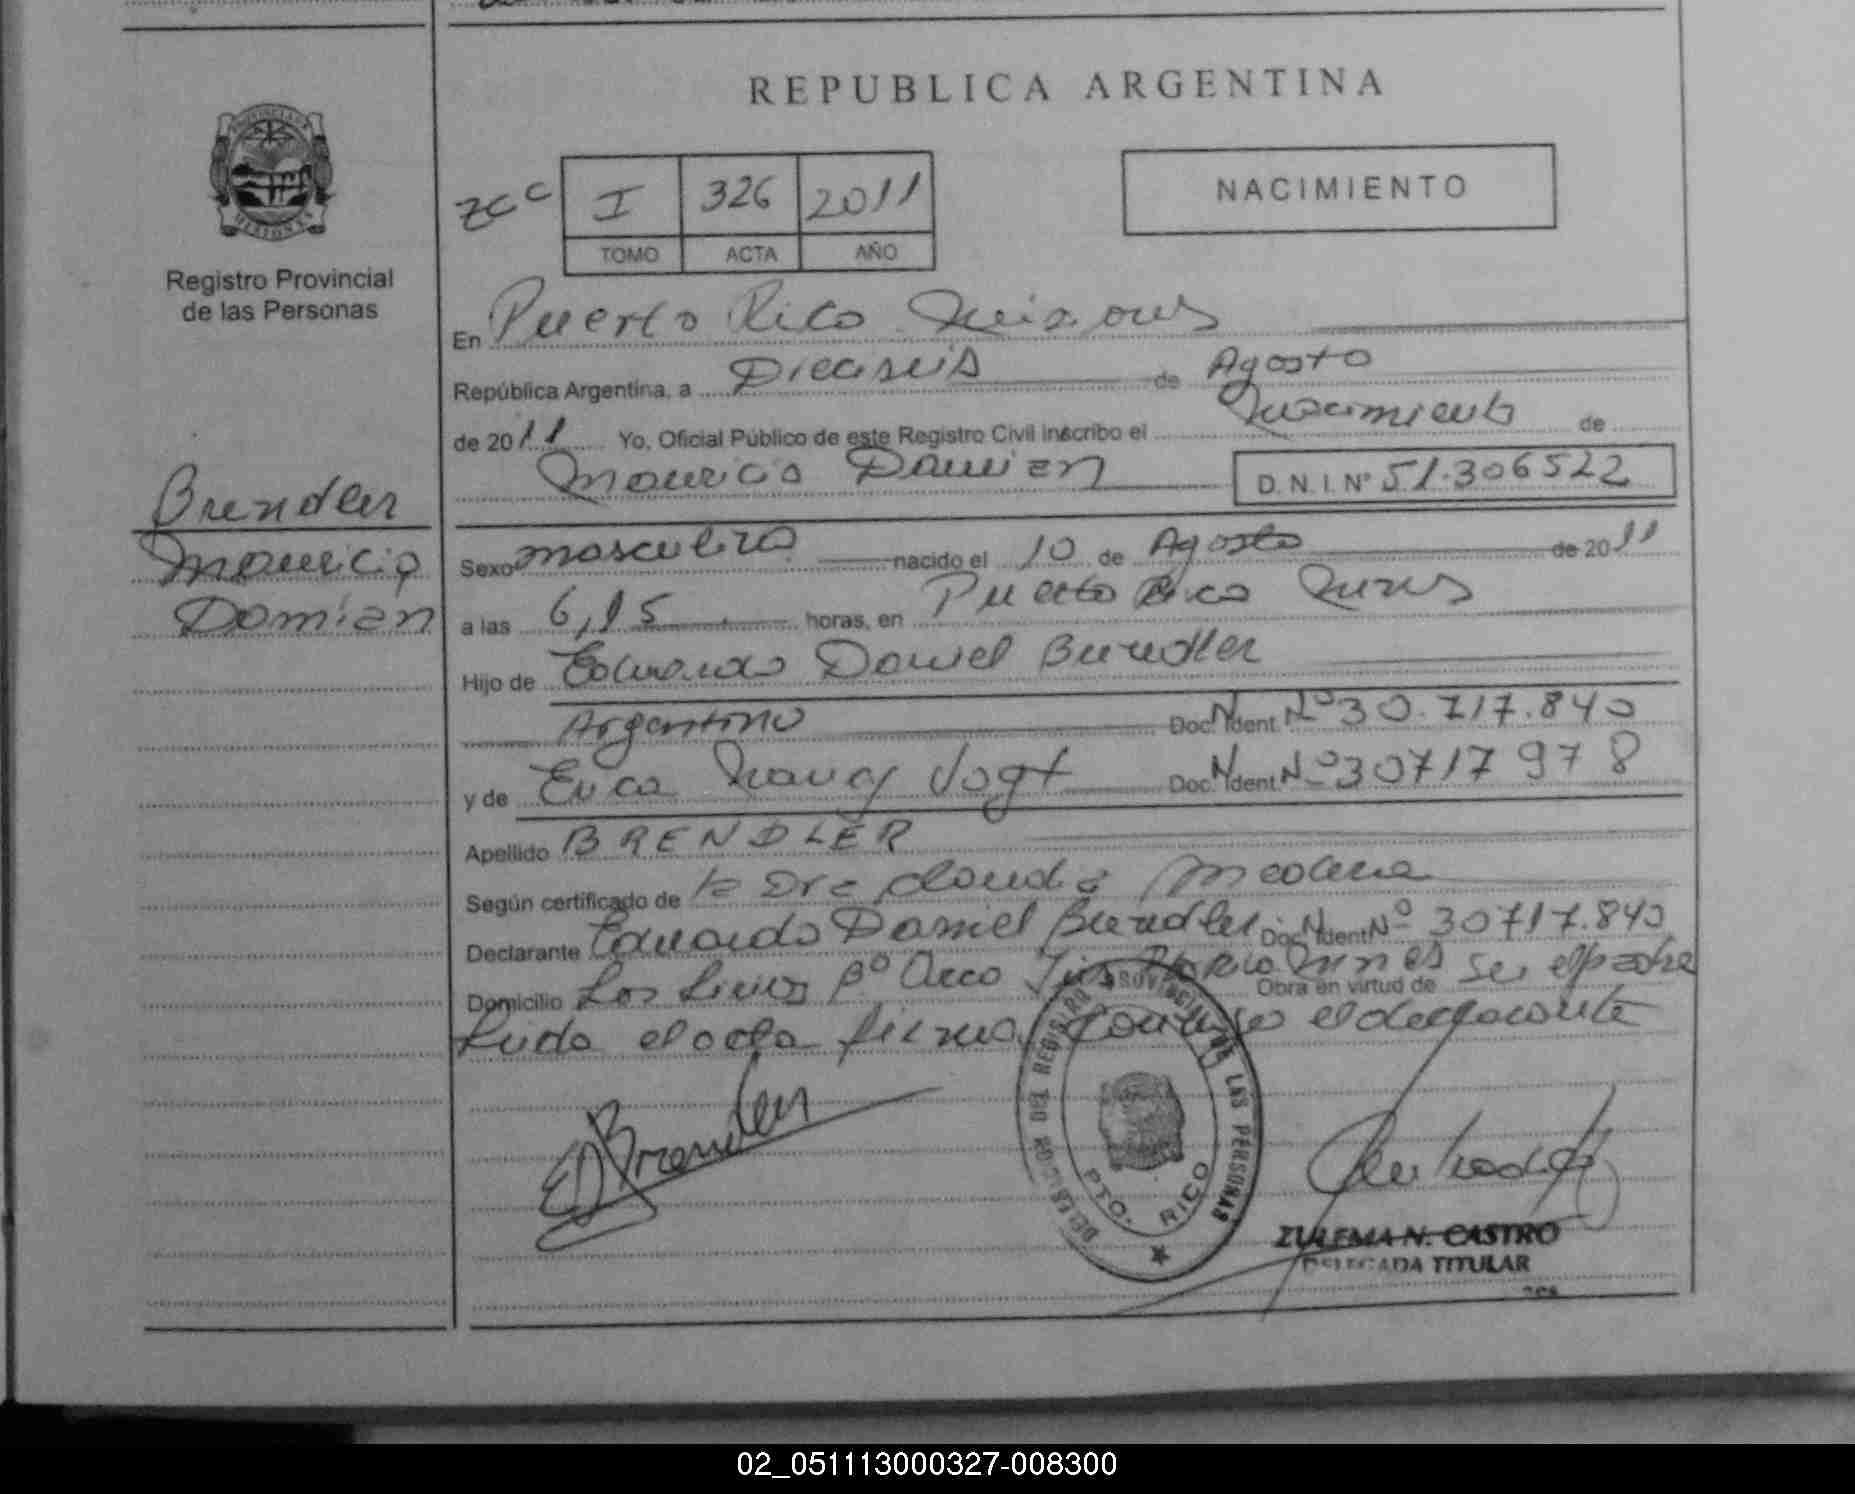 REPUBLICA ARGENTINA
PROVINCIA DE
MISIONES
Registro Provincial
de las Personas
I 326 2011
TOMO ACTA AÑO
NACIMIENTO
En Puerto Rico Misiones
República Argentina, a Dieciseis de Agosto
de 2011 Yo, Oficial Público de este Registro Civil inscribo el Nacimiento de
Mauricio Damian D.N.I. Nº 51.306522
Brendler
Mauricio
Damian
Sexo masculino nacido el 10 de Agosto de 2011
a las 6,15 horas, en Puerto Rico
Hijo de Eduardo Daniel Brendler
Argentino Doc. Ident. Nº 30.717.840
y de Erica Nancy Vogt Doc. Ident. Nº 30717978
Apellido BRENDLER
Según certificado de la Dra Claudia Medina
Declarante Eduardo Daniel Brendler Doc. Ident. Nº 30717.840
Domicilio Los Bº Obra en virtud de ser el padre
Leida el acta firma el declarante
EDBrendler
DELEGACION DEL REGISTRO PROVINCIAL DE LAS PERSONAS
PTO. RICO
ZULEMA N. CASTRO
DELEGADA TITULAR
02_051113000327-008300